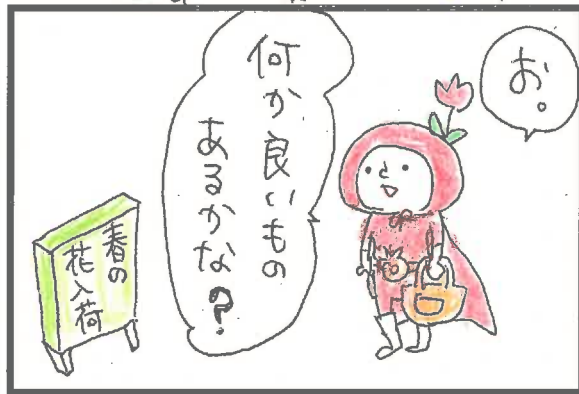 お。
何か良いもの
あるかな?
春の
花入荷